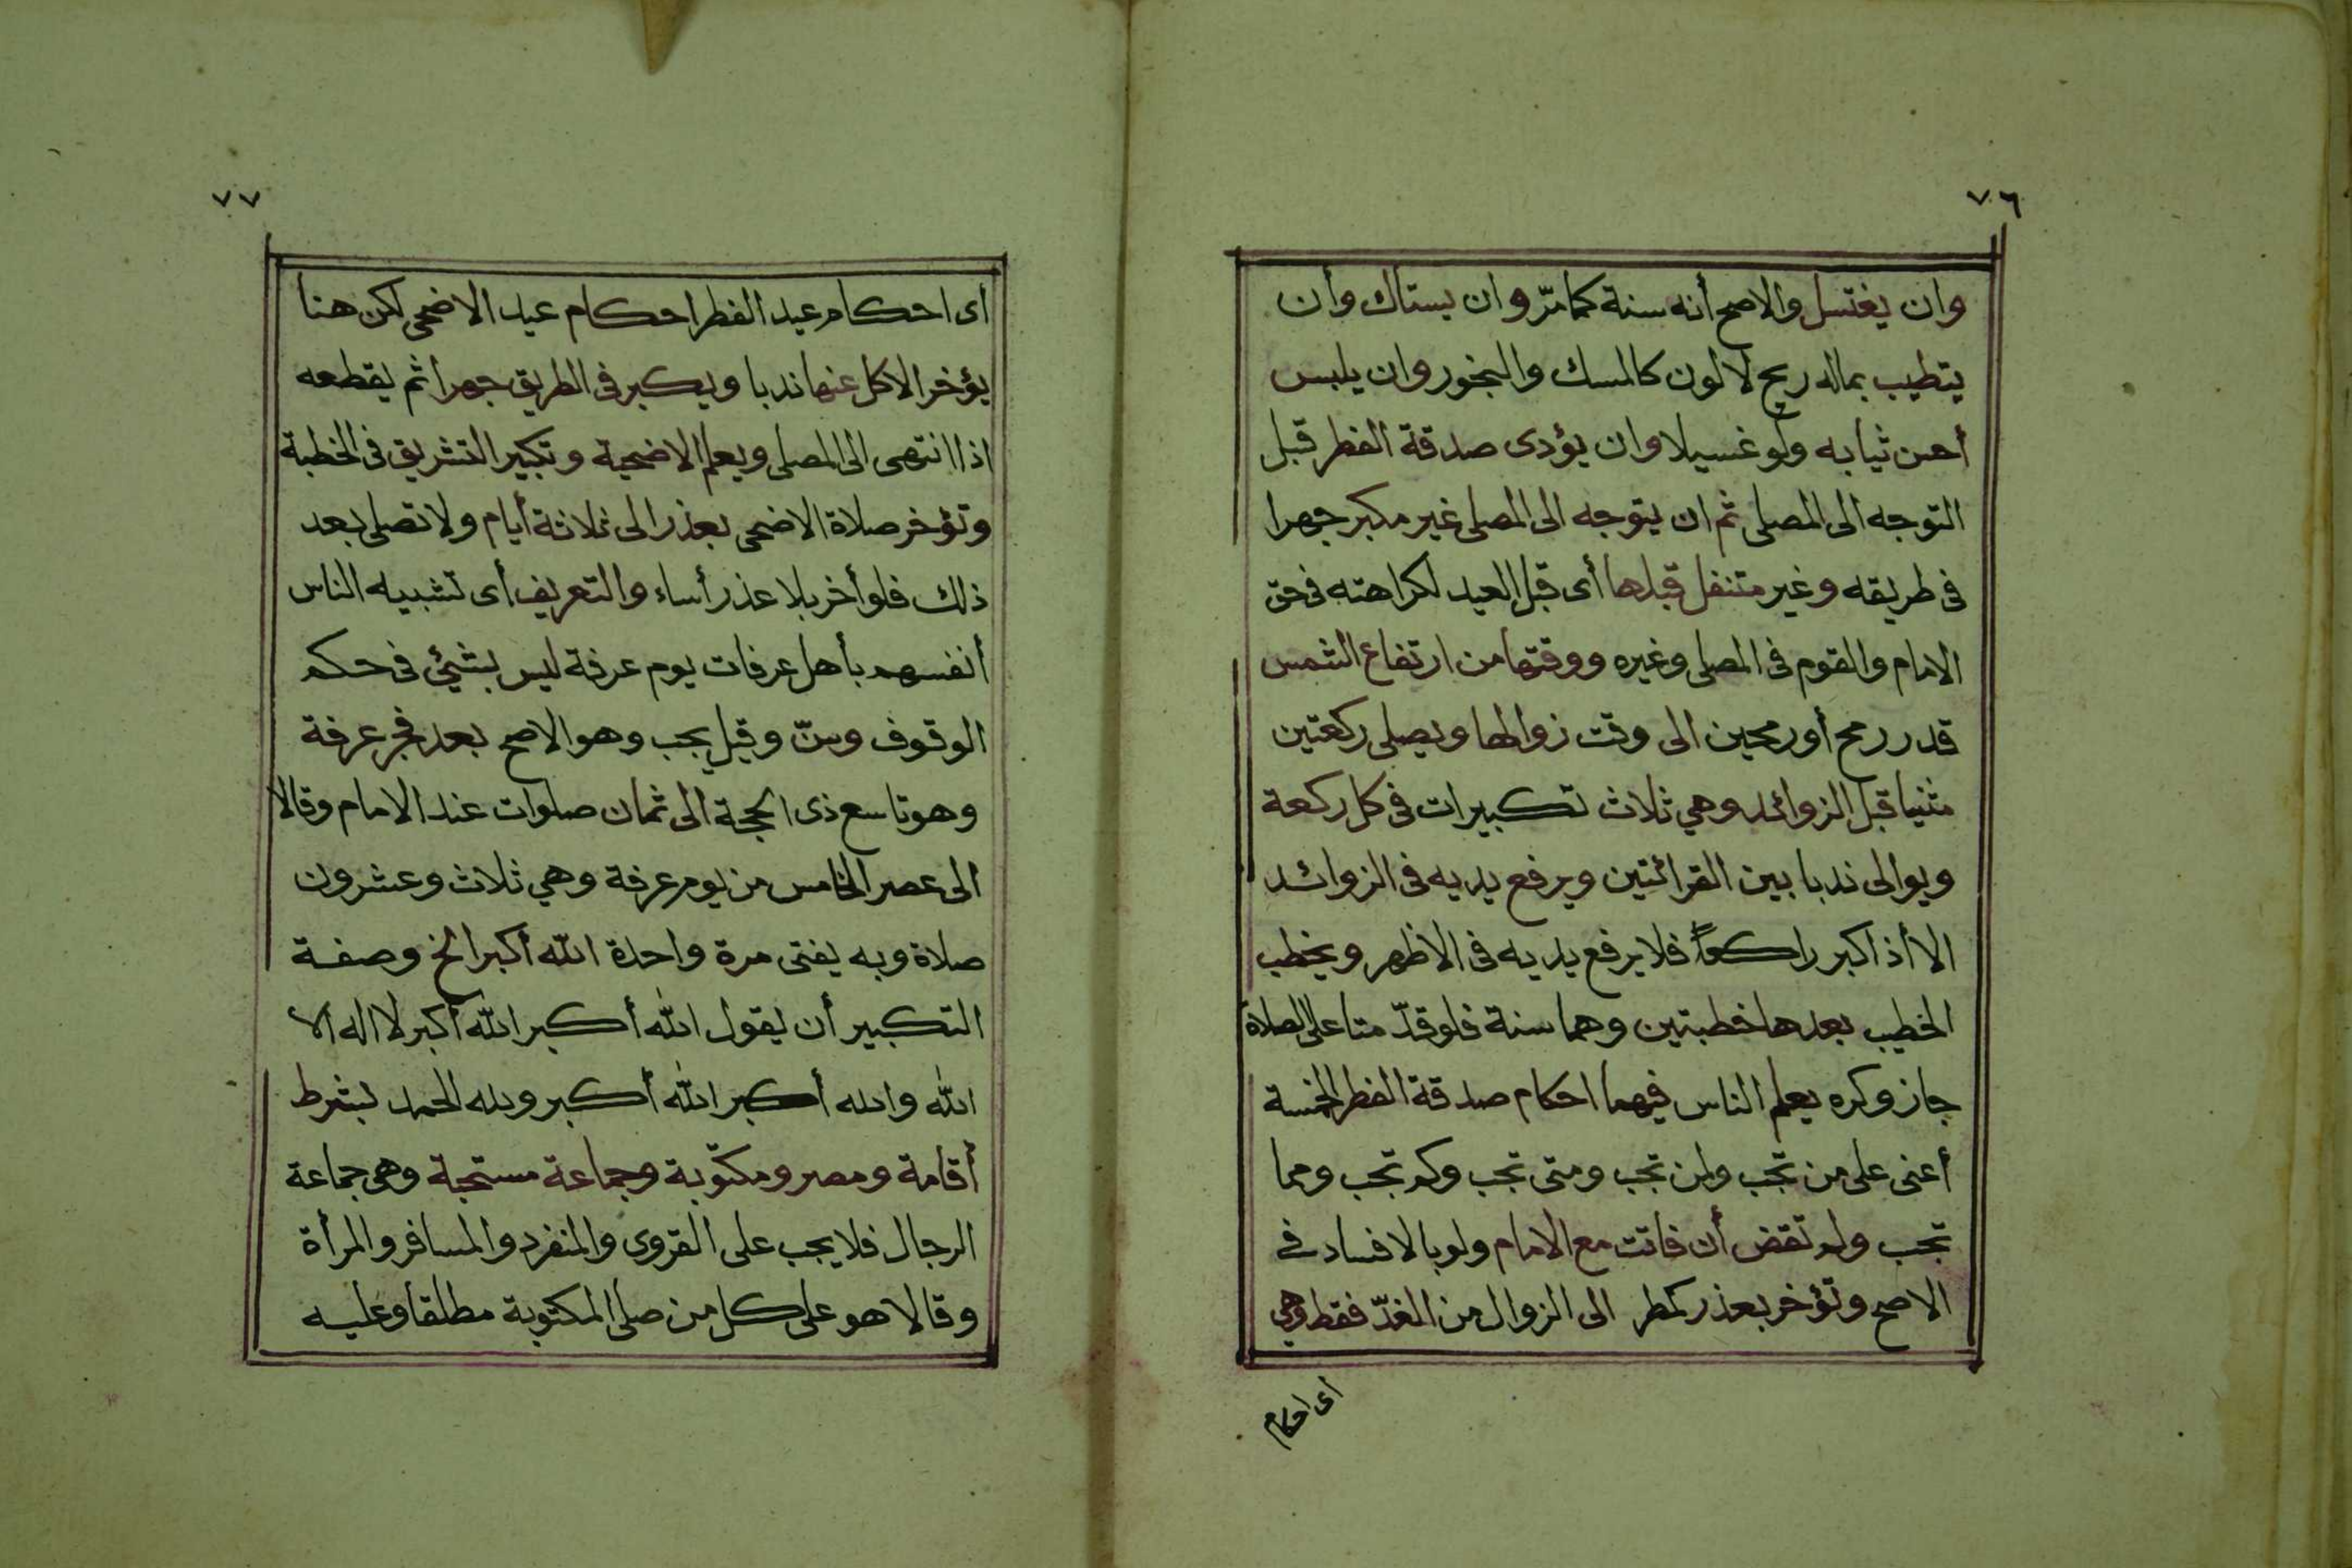 ٧٦
وان يغتسل والاصح أنه سنة كما مرّ وان يستاك وأن
يتطيب بماله ريح لا لون كالمسك والبخور وان يلبس
أحسن ثيابه ولو غسيلا وان يؤدى صدقة الفطر قبل
التوجه الى المصلى ثم ان يتوجه الى المصلى غير مكبر جهرا
فى طريقه وغير متنفل قبلها أى قبل العيد لكراهته فى حق
الامام والقوم فى المصلى وغيره ووقتها من ارتفاع الشمس
قدر رمح أو رمحين الى وقت زوالها ويصلى ركعتين
مثنيا قبل الزوائد وهي ثلاث تكبيرات فى كل ركعة
ويوالى ندبا بين القرائتين ويرفع يديه فى الزوائد
الا أذا كبر راكعاً فلا يرفع يديه فى الاظهر ويخطب
الخطيب بعدها خطبتين وهما سنة فلو قدّمتا على الصلاة
جاز وكره يعلم الناس فيهما احكام صدقة الفطر الخمسة
أعنى على من تجب ولمن تجب ومتى تجب وكم تجب ومما
تجب ولم تقض أن فاتت مع الامام ولو بالافساد فے
الاصح وتؤخر بعذر كمطر الى الزوال من الغدّ فقط وهي
أى احكام
٧٧
أى احكام عيد الفطر احكام عيد الاضحى لكن هنا
يؤخر الاكل عنها ندبا ويكبر فى الطريق جهرا ثم يقطعه
اذا انتهى الى المصلى ويعلم الاضحية وتكبير التشريق فى الخطبة
وتؤخر صلاة الاضحى بعذر الى ثلاثة أيام ولا تصلى بعد
ذلك فلو أخر بلا عذر أساء والتعريف أى تشبيه الناس
أنفسهم بأهل عرفات يوم عرفة ليس بشيئ فى حكم
الوقوف وسنّ وقيل يجب وهو الاصح بعد فجر عرفة
وهو تاسع ذى الحجة الى ثمان صلوات عند الامام وقالا
الى عصر الخامس من يوم عرفة وهي ثلاث وعشرون
صلاة وبه يفتى مرة واحدة الله أكبر الخ وصفة
التكبير أن يقول الله أكبر الله أكبر لا اله الا
الله والله أكبر الله أكبر ولله الحمد بشرط
أقامة ومصر ومكتوبة وجماعة مستحبة وهى جماعة
الرجال فلا يجب على القروى والمنفرد والمسافر والمرأة
وقالا هو على كل من صلى المكتوبة مطلقا وعليه